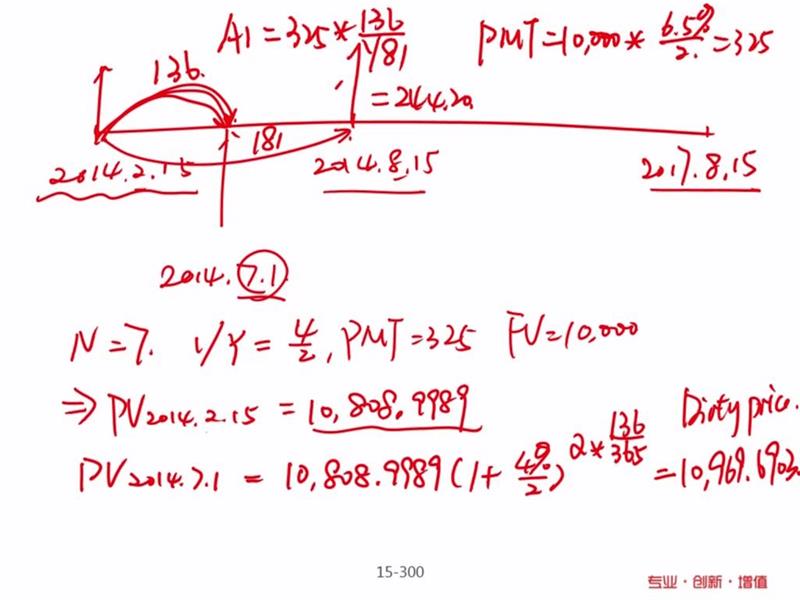 AI = 325 * 136/181
PMT = 10,000 * 6.5%/2. = 325
136.
= 244.20
181
2014.2.15
2014.8.15
2017.8.15
2014.7.1
N = 7. I/Y = 4/2, PMT = 325 FV = 10,000
⇒ PV2014.2.15 = 10,808.9989
Dirty price.
PV2014.7.1 = 10,808.9989 (1 + 4%/2)^2*136/365 = 10,969.6903
15-300
专业·创新·增值